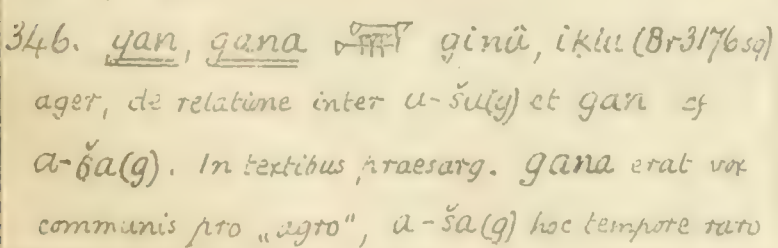 346. gan, gana 𒃷 ginû, iḳlu (Br 3176 sq)
ager, de relatione inter a-ša(g) et gan cf
a-ša(g). In textibus praesarg. gana erat vox
communis pro „agro", a-ša(g) hoc tempore raro